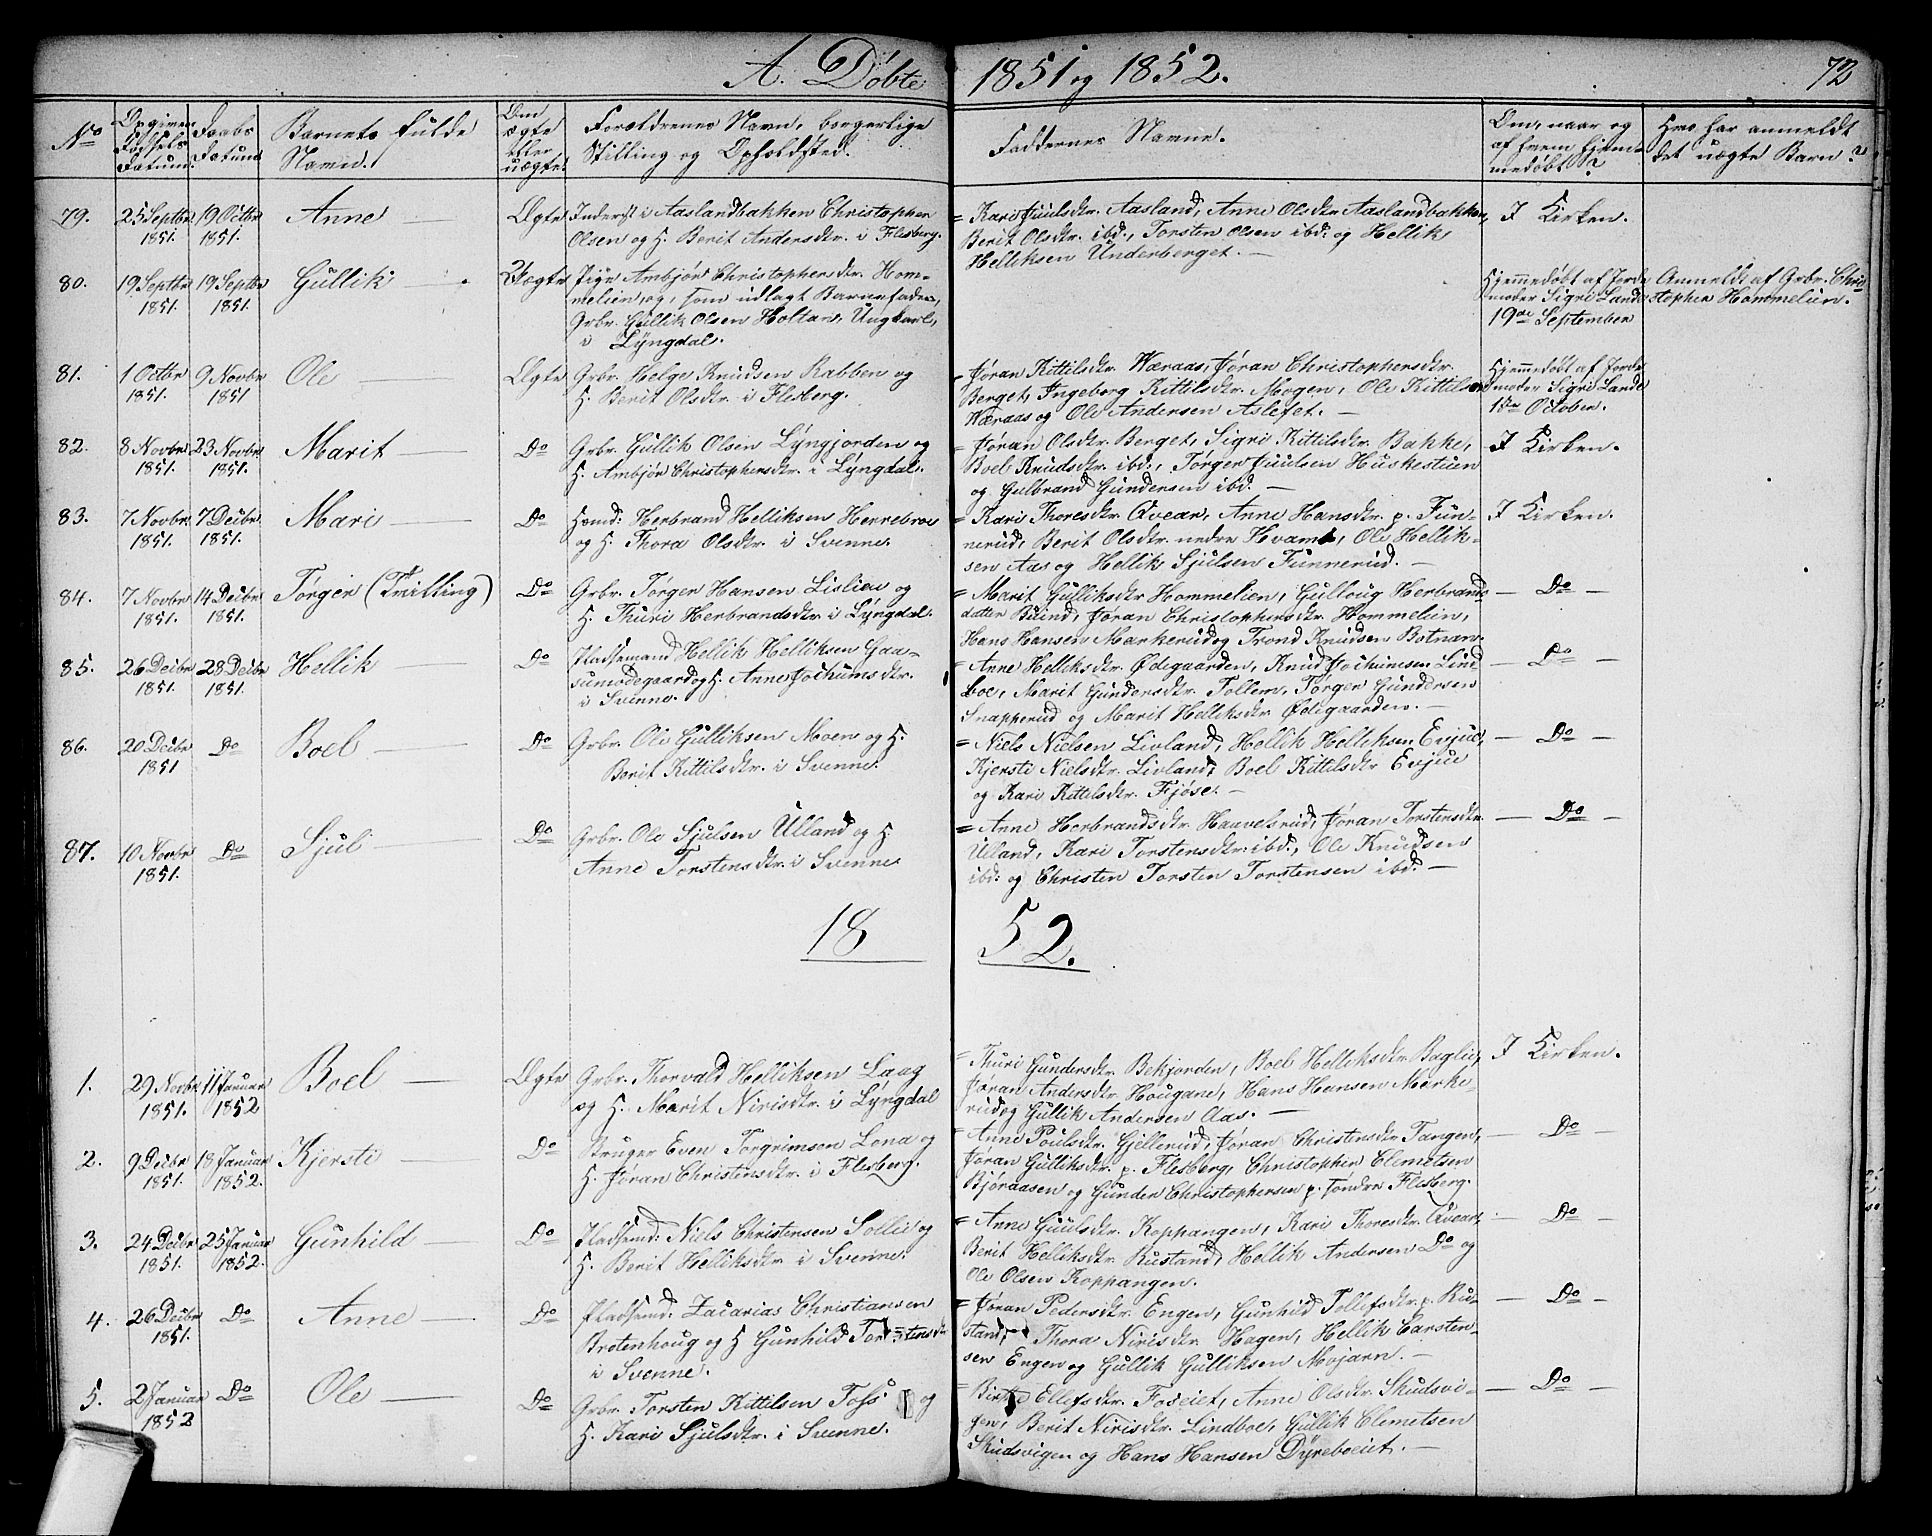 A. Døbte 1851 og 1852. 72
No
Opgiven Fødsels Datum.
Daabs Datum
Barnets fulde Navn.
Om ægte eller uægte.
Forældrenes Navn, borgerlige Stilling og Opholdsted.
Faddernes Navne.
Om, naar og af hvem hjemmedøbt?
Hvo har anmeldt det uægte Barn?
79. 25 Septbr 1851. 19 Octbr 1851. Anne Ægte
Inderst i Aaslandbakken Christopher
Olsen og H. Berit Andersdtr. i Flesberg.
= Kari Juulsdtr. Aasland, Anne Olsdtr Aaslandbakken,
Berit Olsdtr. ibd., Torsten Olsen ibd. og Hellik
Helliksen Underberget. —
I Kirken.
80. 19 Septbr 1851. 19 Septbr 1851. Gullik Uægte
Pige Ambjør Christophersdtr. Hom-
melien, og, som udlagt Barnefader,
Grbr. Gullik Olsen Holtan, Ungkarl,
i Lyngdal.
Hjemmedøbt af Jorde
moder Sigri Lande
19de September
Anmeldt af Grbr. Chri-
stopher Hommelien.
81. 1 Octbr 1851. 9 Novbr 1851 Ole Ægte
Grbr. Helge Knudsen Rabben og
H. Berit Olsdtr. i Flesberg.
= Jøran Kittilsdtr. Væraas, Jøran Christophersdtr.
Berget, Ingeberg Kittilsdtr. Mogen, Ole Kittilsen
Væraas og Ole Andersen Aslefet. —
Hjemmedøbt af Jorde
moder Sigri Lande
1ste October.
82. 8 Novbr 1851. 23 Novbr 1851. Marit Do
Grbr. Gullik Olsen Lyngjorden og
H. Ambjør Christophersdtr. i Lyngdal.
= Jøran Olsdtr. Berget, Sigri Kittilsdtr. Bakke,
Boel Knudsdtr. ibd., Tørger Juulsen Huskestuen
og Gulbrand Gundersen ibd. —
I Kirken.
83. 7 Novbr. 1851. 7 Decbr. 1851. Mari Do
Hemd: Herbrand Helliksen Herrebroe
og H. Thora Olsdtr. i Svenne.
= Kari Thoresdtr. Qvear, Anne Hansdtr. p. Fun-
nerud, Berit Olsdtr. nedre Hvam, Ole Hellik-
sen Aas og Hellik Sjulsen Funnerud. —
I Kirken.
84. 7 Novbr 1851. 14 Decbr 1851. Tørger (Tvilling) Do
Grbr. Tørger Hansen Lislien og
H. Thuri Herbrandsdtr. i Lyngdal.
= Marit Gulliksdtr Hommelien, Gulloug Herbrands-
datter Bilind, Jøran Christophersdtr. Hommelien,
Hans Hansen Markerud og Trond Knudsen Botnan.
— Do —
85. 26 Decbr 1851. 28 Decbr 1851. Hellik Do
Pladsemand Hellik Helliksen Gaa-
sumødegaard og H. Anne Jochumsdtr.
i Svenne.
= Anne Helliksdtr. Ødegaarden, Knud Jochumsen Lind
boe, Marit Gundersdtr. Tollem, Tørger Gundersen
Snapperud og Marit Helliksdtr Ødegaarden. —
— Do —
86. 20 Decbr 1851 Do Boel Do
Grbr. Ole Gulliksen Moen og H.
Berit Kittilsdtr. i Svenne.
= Niels Nielsen Livland, Hellik Helliksen Evjue,
Kjersti Nielsdtr. Livland, Boel Kittilsdtr Evjue
og Kari Kittilsdtr. Fjøse. —
— Do —
87. 10 Novbr 1851. Do Sjul Do
Grbr. Ole Sjulsen Ulland og H.
Anne Torstensdtr. i Svenne
= Anne Herbrandsdtr. Haavelsrud, Jøran Torstensdtr.
Ulland, Kari Torstensdtr. ibd., Ole Knudsen
ibd. og Christen Torsten Torstensen ibd. —
— Do —
1852.
1. 29 Novbr 1851. 11 Januar 1852 Boel Ægte
Grbr. Thorvald Helliksen Laag
og H. Marit Nirisdtr. i Lyngdal
= Thuri Gundersdtr. Bekjorden, Boel Helliksdtr. Baglie,
Jøran Andersdtr. Hougane, Hans Hansen Marke
rud og Gullik Andersen Aas. —
I Kirken.
2. 9 Decbr 1851. 18 Januar 1852. Kjersti Do
Bruger Even Torgrimsen Lona og
H. Jøran Christensdtr. i Flesberg.
= Anne Poulsdtr. Gjellerud, Jøran Christensdtr Tangen,
Jøran Gulliksdtr. p. Flesberg, Christopher Clemetsen
Bjøraasen og Gunder Christophersen p. søndre Flesberg.
— Do —
3. 24 Decbr 1851. 25 Januar 1852. Gunhild Do
Pladsemd. Niels Christensen Sollie og
H. Berit Helliksdtr. i Svenne.
= Anne Guulsdtr. Koppangen, Kari Thoresdtr. Qvear,
Berit Helliksdtr. Rustand, Hellik Andersen Do og
Ole Olsen Koppangen.
— Do —
4. 26 Decbr 1851. Do Anne Do
Pladsemd. Zacarias Christiansen
Brotenhoug og H Gunhild Torstensdtr
i Svenne.
= Jøran Pedersdtr. Engen, Gunhild Tollefsdtr. p. Ru-
stand, Thora Nirisdtr. Hagen, Hellik Carsten-
sen Engen og Gullik Gulliksen Mojarn. —
— Do —
5. 2 Januar 1852 Do Ole Do
Grbr. Torsten Kittilsen Foss og
H. Kari Sjulsdtr. i Svenne.
= Birthe Ellefsdtr. Foseiet, Anne Olsdtr. Skudsvi-
gen, Berit Nirisdtr. Lindboe, Gullik Clemetsen
Skudsvigen og Hans Hansen Dyreboeiet. —
— Do —